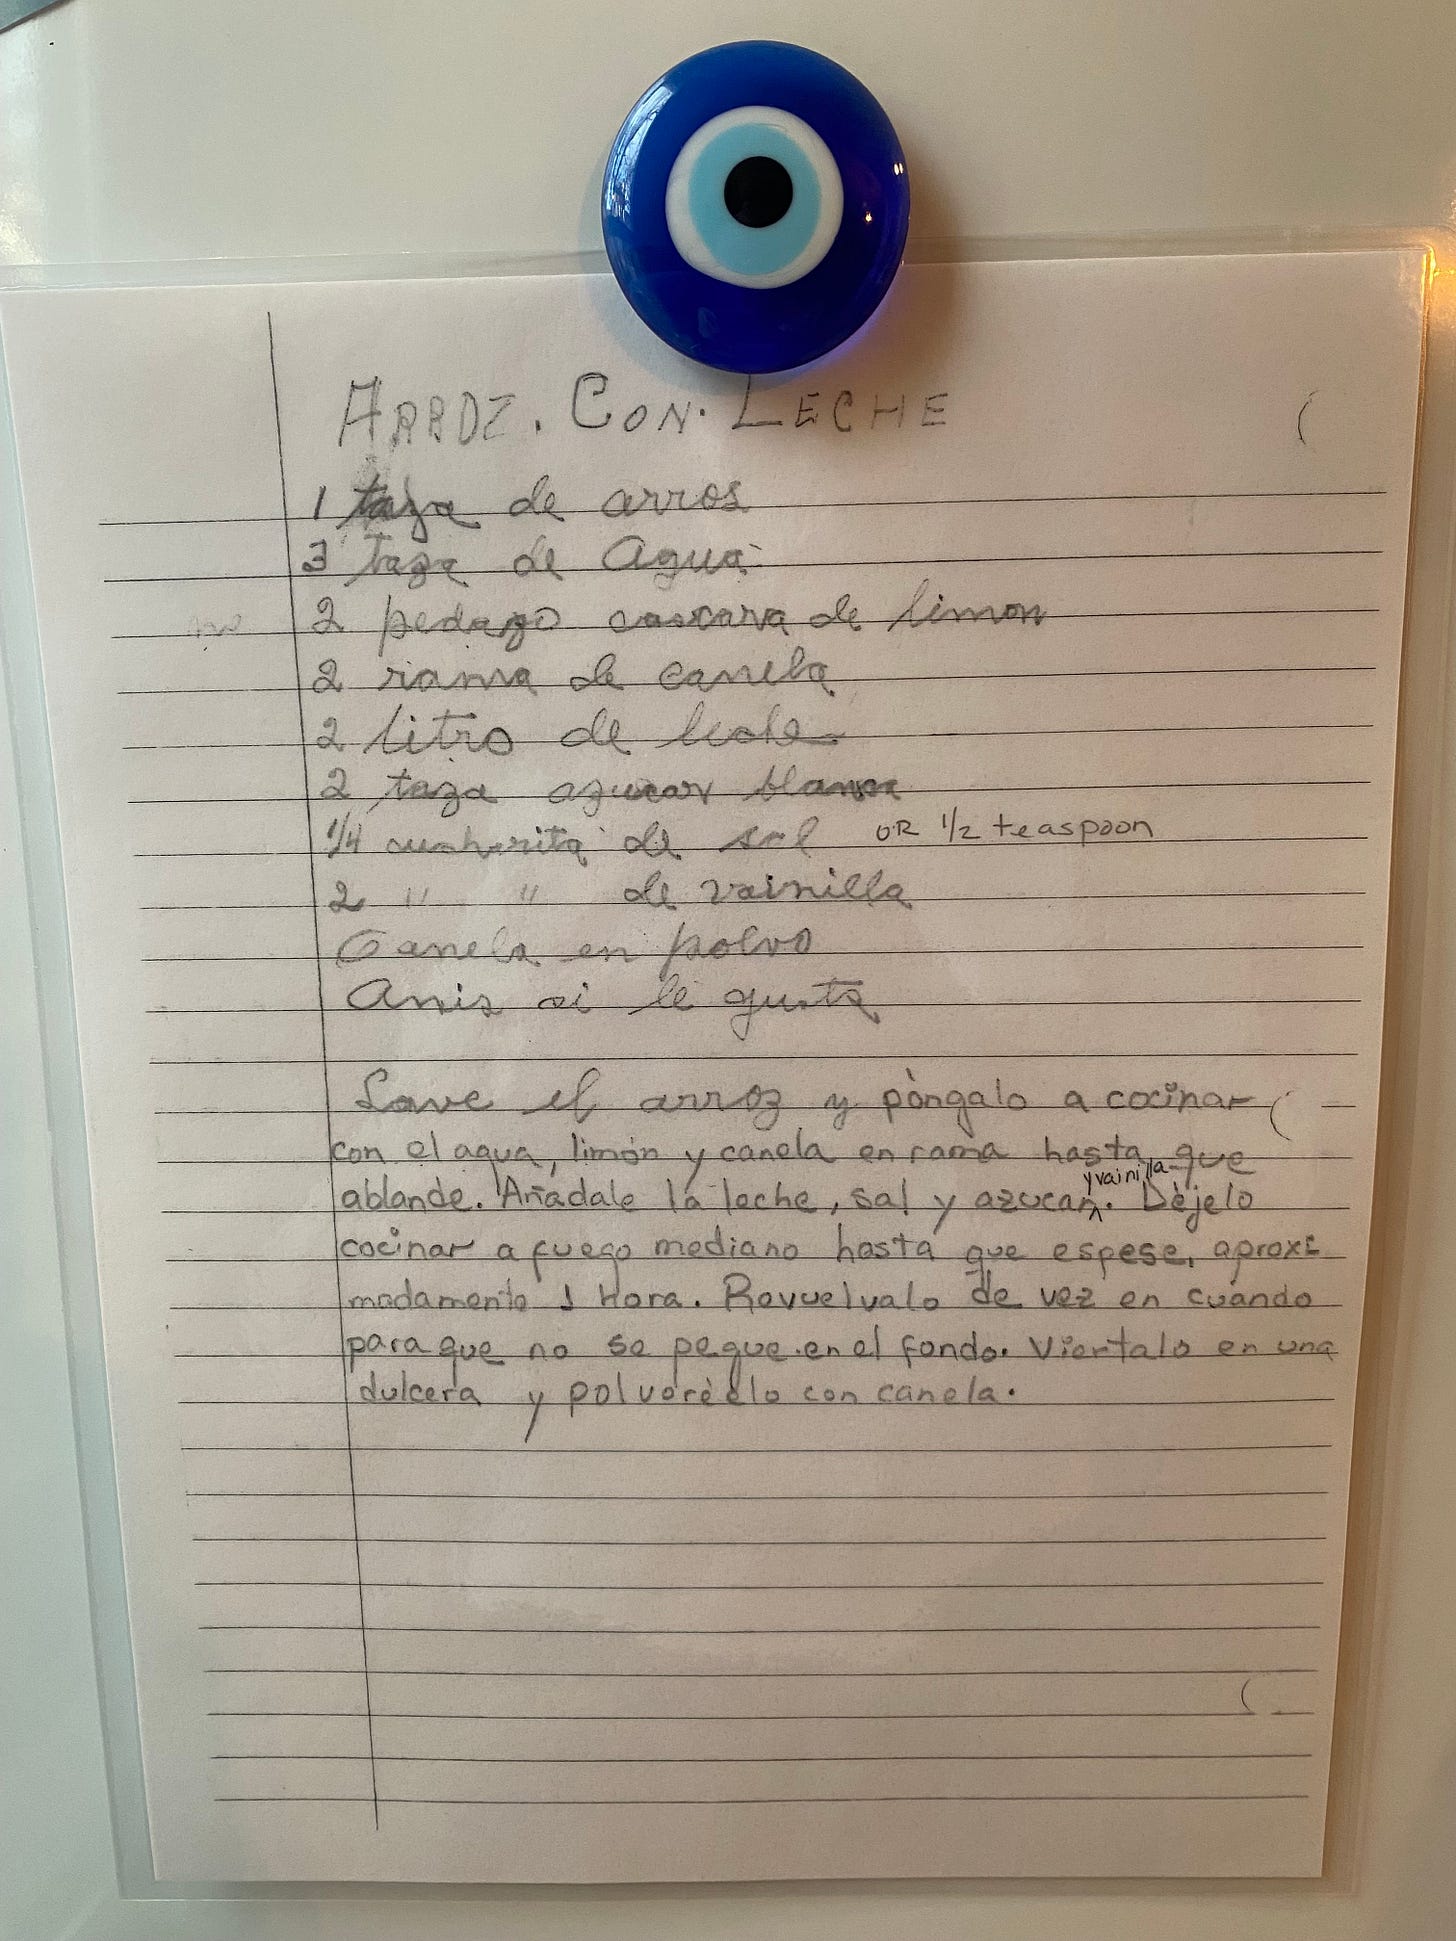 ARROZ. CON. LECHE
1 taza de arros
3 taza de Agua
2 pedazo cascara de limon
2 rama de canela
2 litro de leche
2 taza azucar blanca
1/4 cucharita de sal OR 1/2 teaspoon
2 " " de vainilla
Canela en polvo
Anis si le gusta
Lave el arroz y pòngalo a cocinar
con el agua, limón y canela en rama hasta que
ablande. Añadale la leche, sal y azucar y vainilla. Dèjelo
cocinar a fuego mediano hasta que espese, aproxi
madamente 1 Hora. Revuelvalo de vez en cuando
para que no se pegue en el fondo. Viertalo en una
dulcera y polvorèelo con canela.